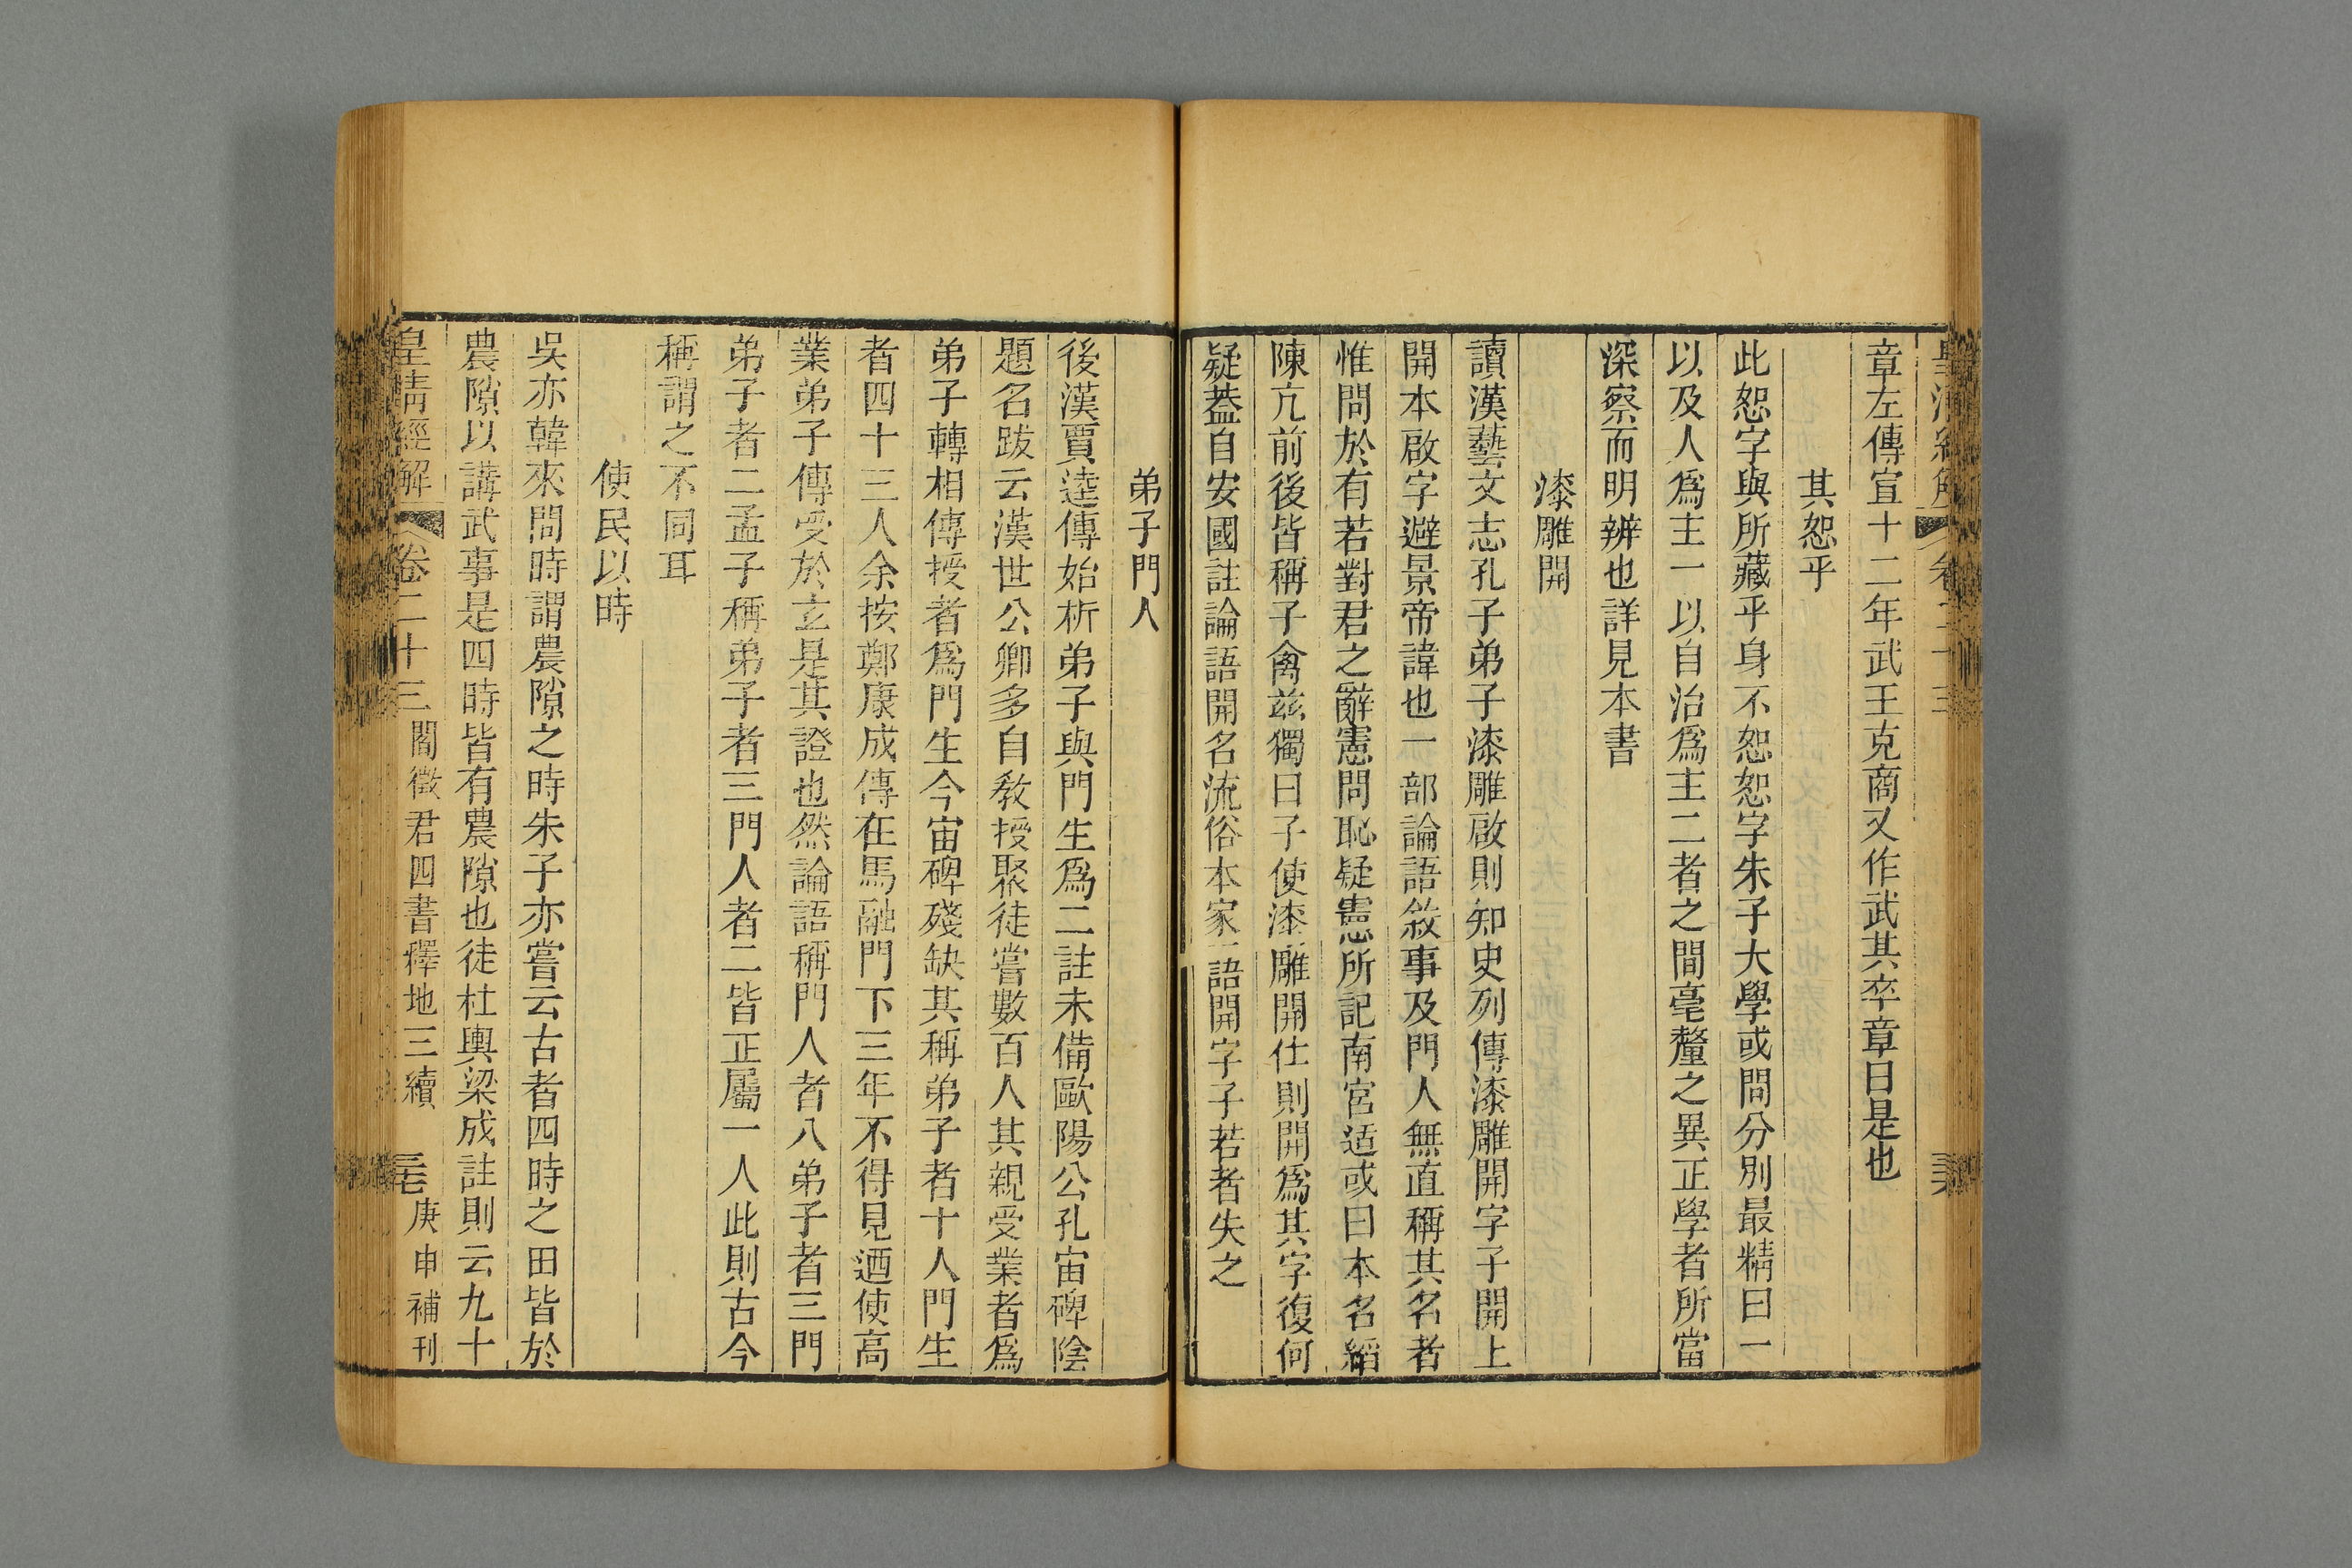 章左傳宣十二年武王克商又作武其卒章曰是也
其恕乎
此恕字與所藏乎身不恕恕字朱子大學或問分別最精曰一
以及人爲主一以自治爲主二者之間毫釐之異正學者所當
深察而明辨也詳見本書
漆雕開
讀漢藝文志孔子弟子漆雕啟則知史列傳漆雕開字子開上
開本啟字避景帝諱也一部論語敘事及門人無直稱其名者
惟問於有若對君之辭憲問恥疑憲所記南宮适或曰本名縚
陳亢前後皆稱子禽兹獨曰子使漆雕開仕則開爲其字復何
疑葢自安國註論語開名流俗本家語開字子若者失之
弟子門人
後漢賈逵傳始析弟子與門生爲二註未備歐陽公孔宙碑陰
題名跋云漢世公卿多自敎授聚徒嘗數百人其親受業者爲
弟子轉相傳授者爲門生今宙碑殘缺其稱弟子者十人門生
者四十三人余按鄭康成傳在馬融門下三年不得見迺使高
業弟子傳受於玄是其證也然論語稱門人者八弟子者三門
弟子者二孟子稱弟子者三門人者二皆正屬一人此則古今
稱謂之不同耳
使民以時
吳亦韓來問時謂農隙之時朱子亦嘗云古者四時之田皆於
農隙以講武事是四時皆有農隙也徒杜輿梁成註則云九十
皇清經解 卷二十三 閻徵君四書釋地三續 三七 庚申補刊